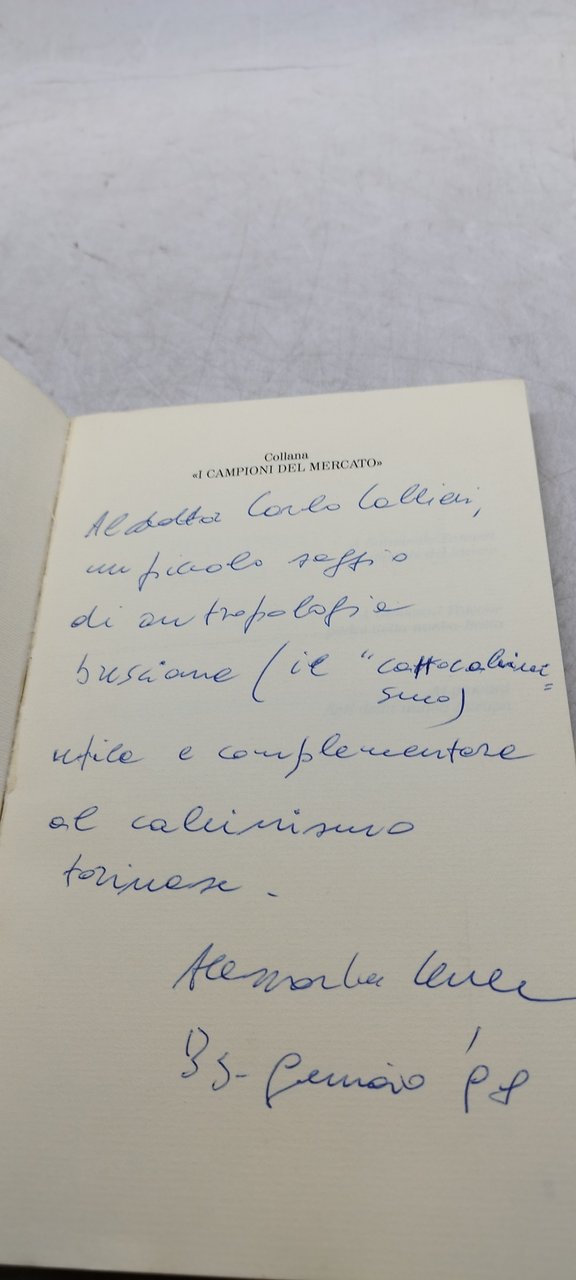 Collana
«I CAMPIONI DEL MERCATO»
Al dottor Carlo Callieri,
un piccolo saggio
di antropologia
bresciana (il "cattocalvini=
smo)
utile e complementare
al calvinismo
torinese.
Alessandra
Bs- gennaio '98